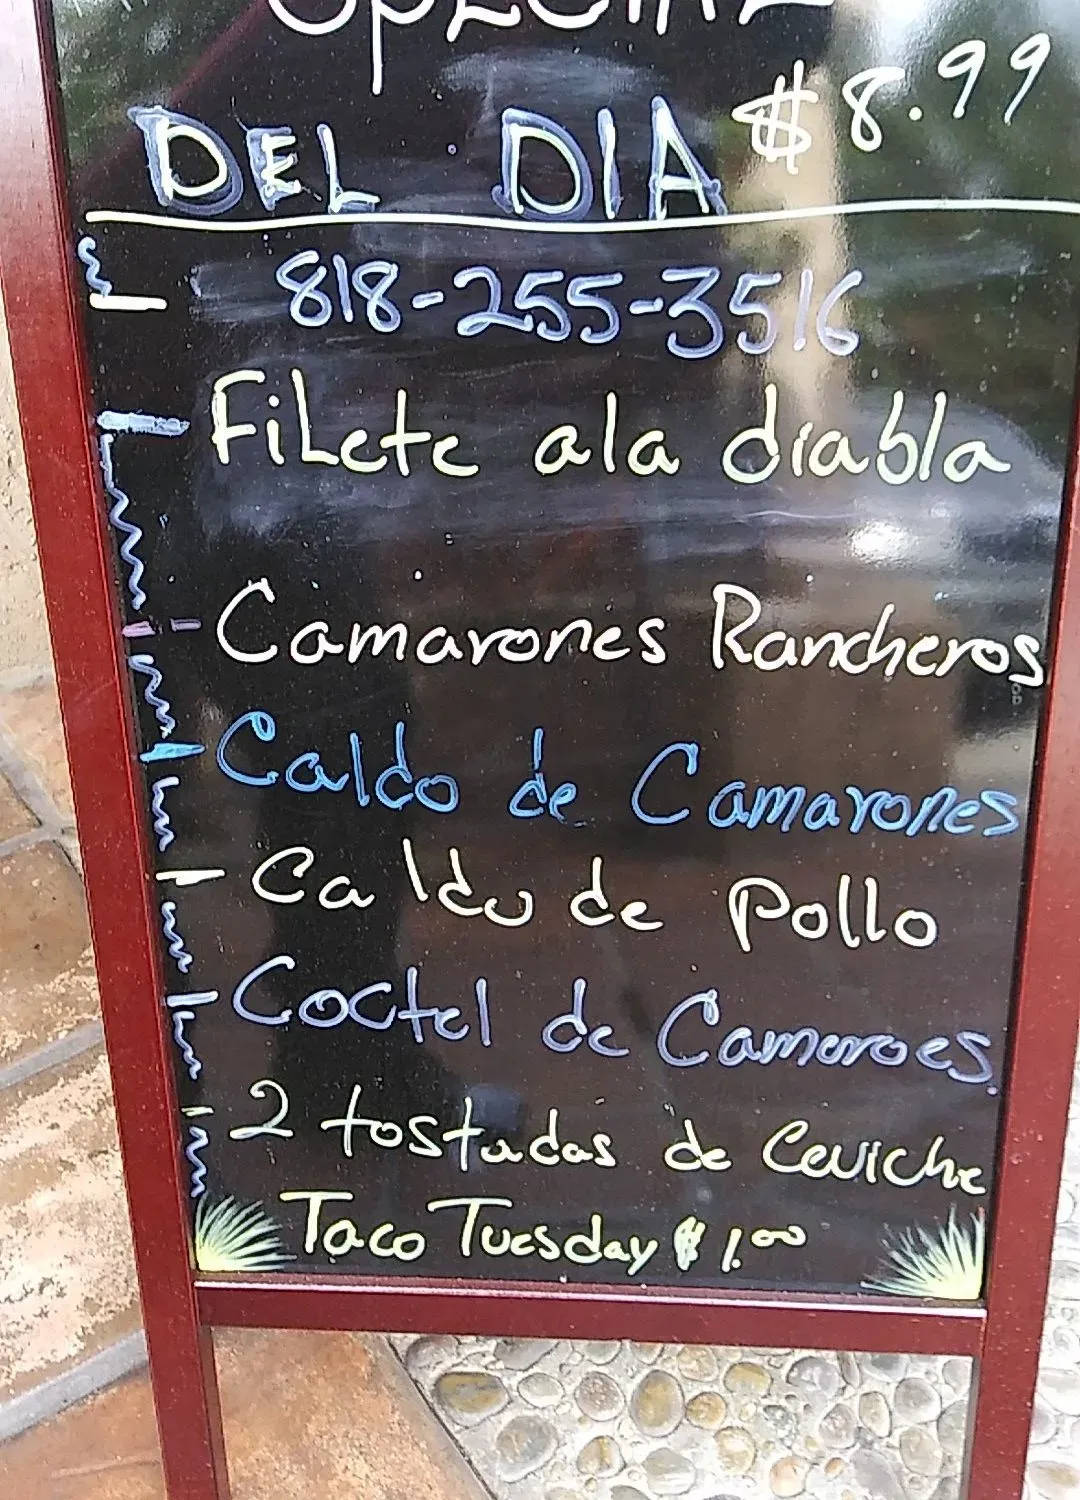 SPECIAL
DEL DIA $8.99
818-255-3516
Filete ala diabla
Camarones Rancheros
Caldo de Camarones
Caldo de pollo
Coctel de Camoroes.
2 tostadas de Ceviche
Taco Tuesday $1.00